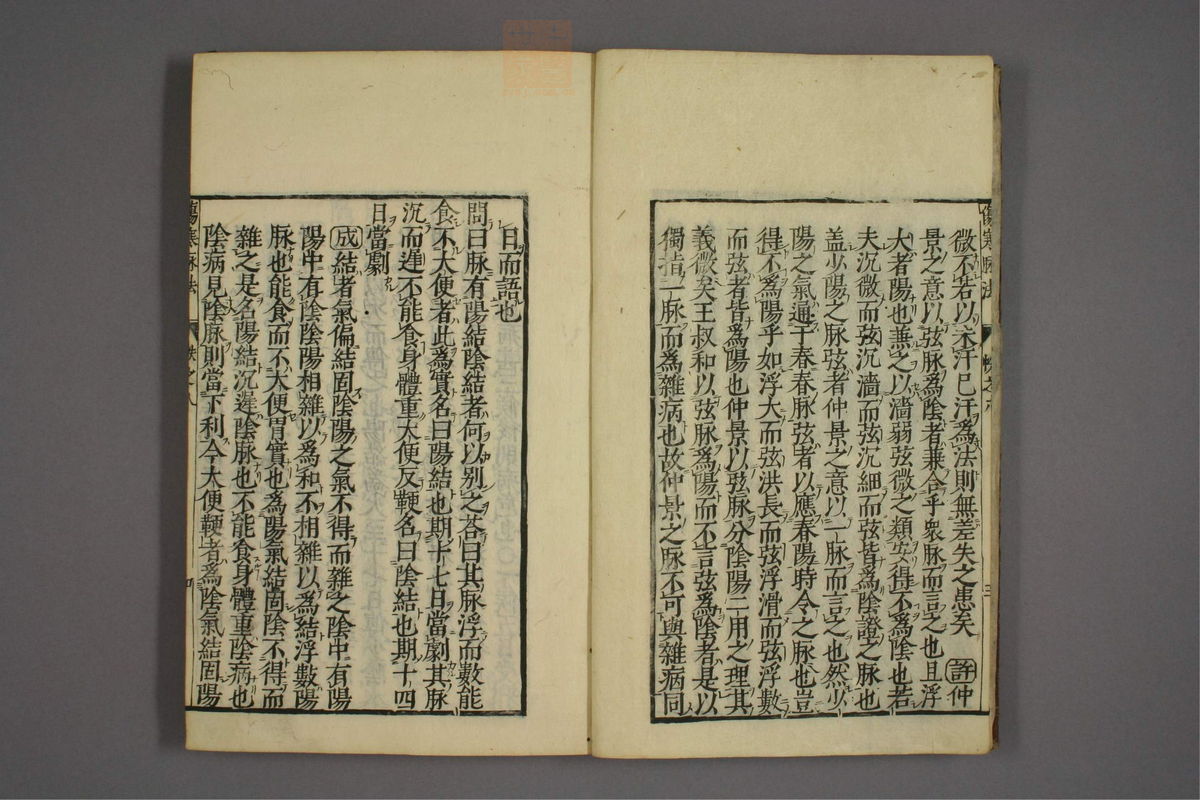 微不若以未汗已汗為法則無差失之患矣 許仲
景之意以弦脉為陰者兼合乎衆脉而言之也且浮
大者陽也兼之以濇弱弦微之類安得不為陰也若
夫沉微而弦沉濇而弦沉細而弦皆為陰證之脉也
盖少陽之脉弦者仲景之意以一脉而言之也然少
陽之氣通于春春脉弦者以應春陽時令之脉也豈
得不為陽乎如浮大而弦洪長而弦浮滑而弦浮數
而弦者皆為陽也仲景以弦脉分陰陽二用之理其
義微矣王叔和以弦脉為陽而不言弦為陰者是以
獨指一脉而為雜病也故仲景之脉不可與雜病同
日而語也
問曰脉有陽結陰結者何以别之荅曰其脉浮而數能
食不大便者此為實名曰陽結也期十七日當劇其脉
沉而遲不能食身體重大便反鞕名曰陰結也期十四
日當劇
成 結者氣偏結固陰陽之氣不得而雜之陰中有陽
陽中有陰陰陽相雜以為和不相雜以為結浮數陽
脉也能食而不大便胃實也為陽氣結固陰不得而
雜之是名陽結沉遲陰脉也不能食身體重陰病也
陰病見陰脉則當下利今大便鞕者為陰氣結固陽
傷寒脉法